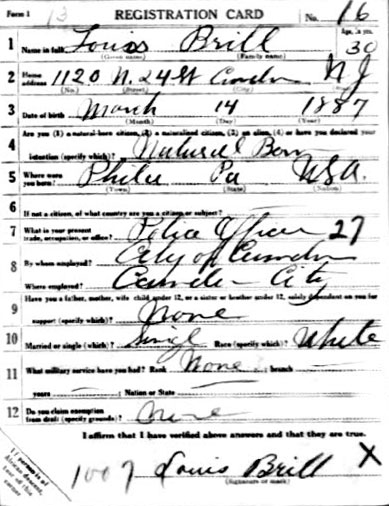 Form 1 13 REGISTRATION CARD No. 16
1 Name in full Louis Brill Age, in yrs. 30
(Given name) (Family name)
2 Home address 1120 N. 24 St Camden N J
(No.) (Street) (City)
3 Date of birth March 14 1887
(Month) (Day) (Year)
Are you (1) a natural-born citizen, (2) a naturalized citizen, (3) an alien, (4) or have you declared your
4 intention (specify which)? Natural Born
5 Where were you born? Phila Pa USA.
(Town) (State) (Nation)
6 If not a citizen, of what country are you a citizen or subject?
7 What is your present trade, occupation, or office? Police Officer 27
8 By whom employed? City of Camden
Where employed? Camden City
9 Have you a father, mother, wife, child under 12, or a sister or brother under 12, solely dependent on you for
support (specify which)? None
10 Married or single (which)? Single Race (specify which)? White
11 What military service have you had? Rank None ; branch
years ; Nation or State
12 Do you claim exemption from draft (specify grounds)? None
I affirm that I have verified above answers and that they are true.
100 7 Louis Brill X
(Signature or mark)
If person is of African descent,